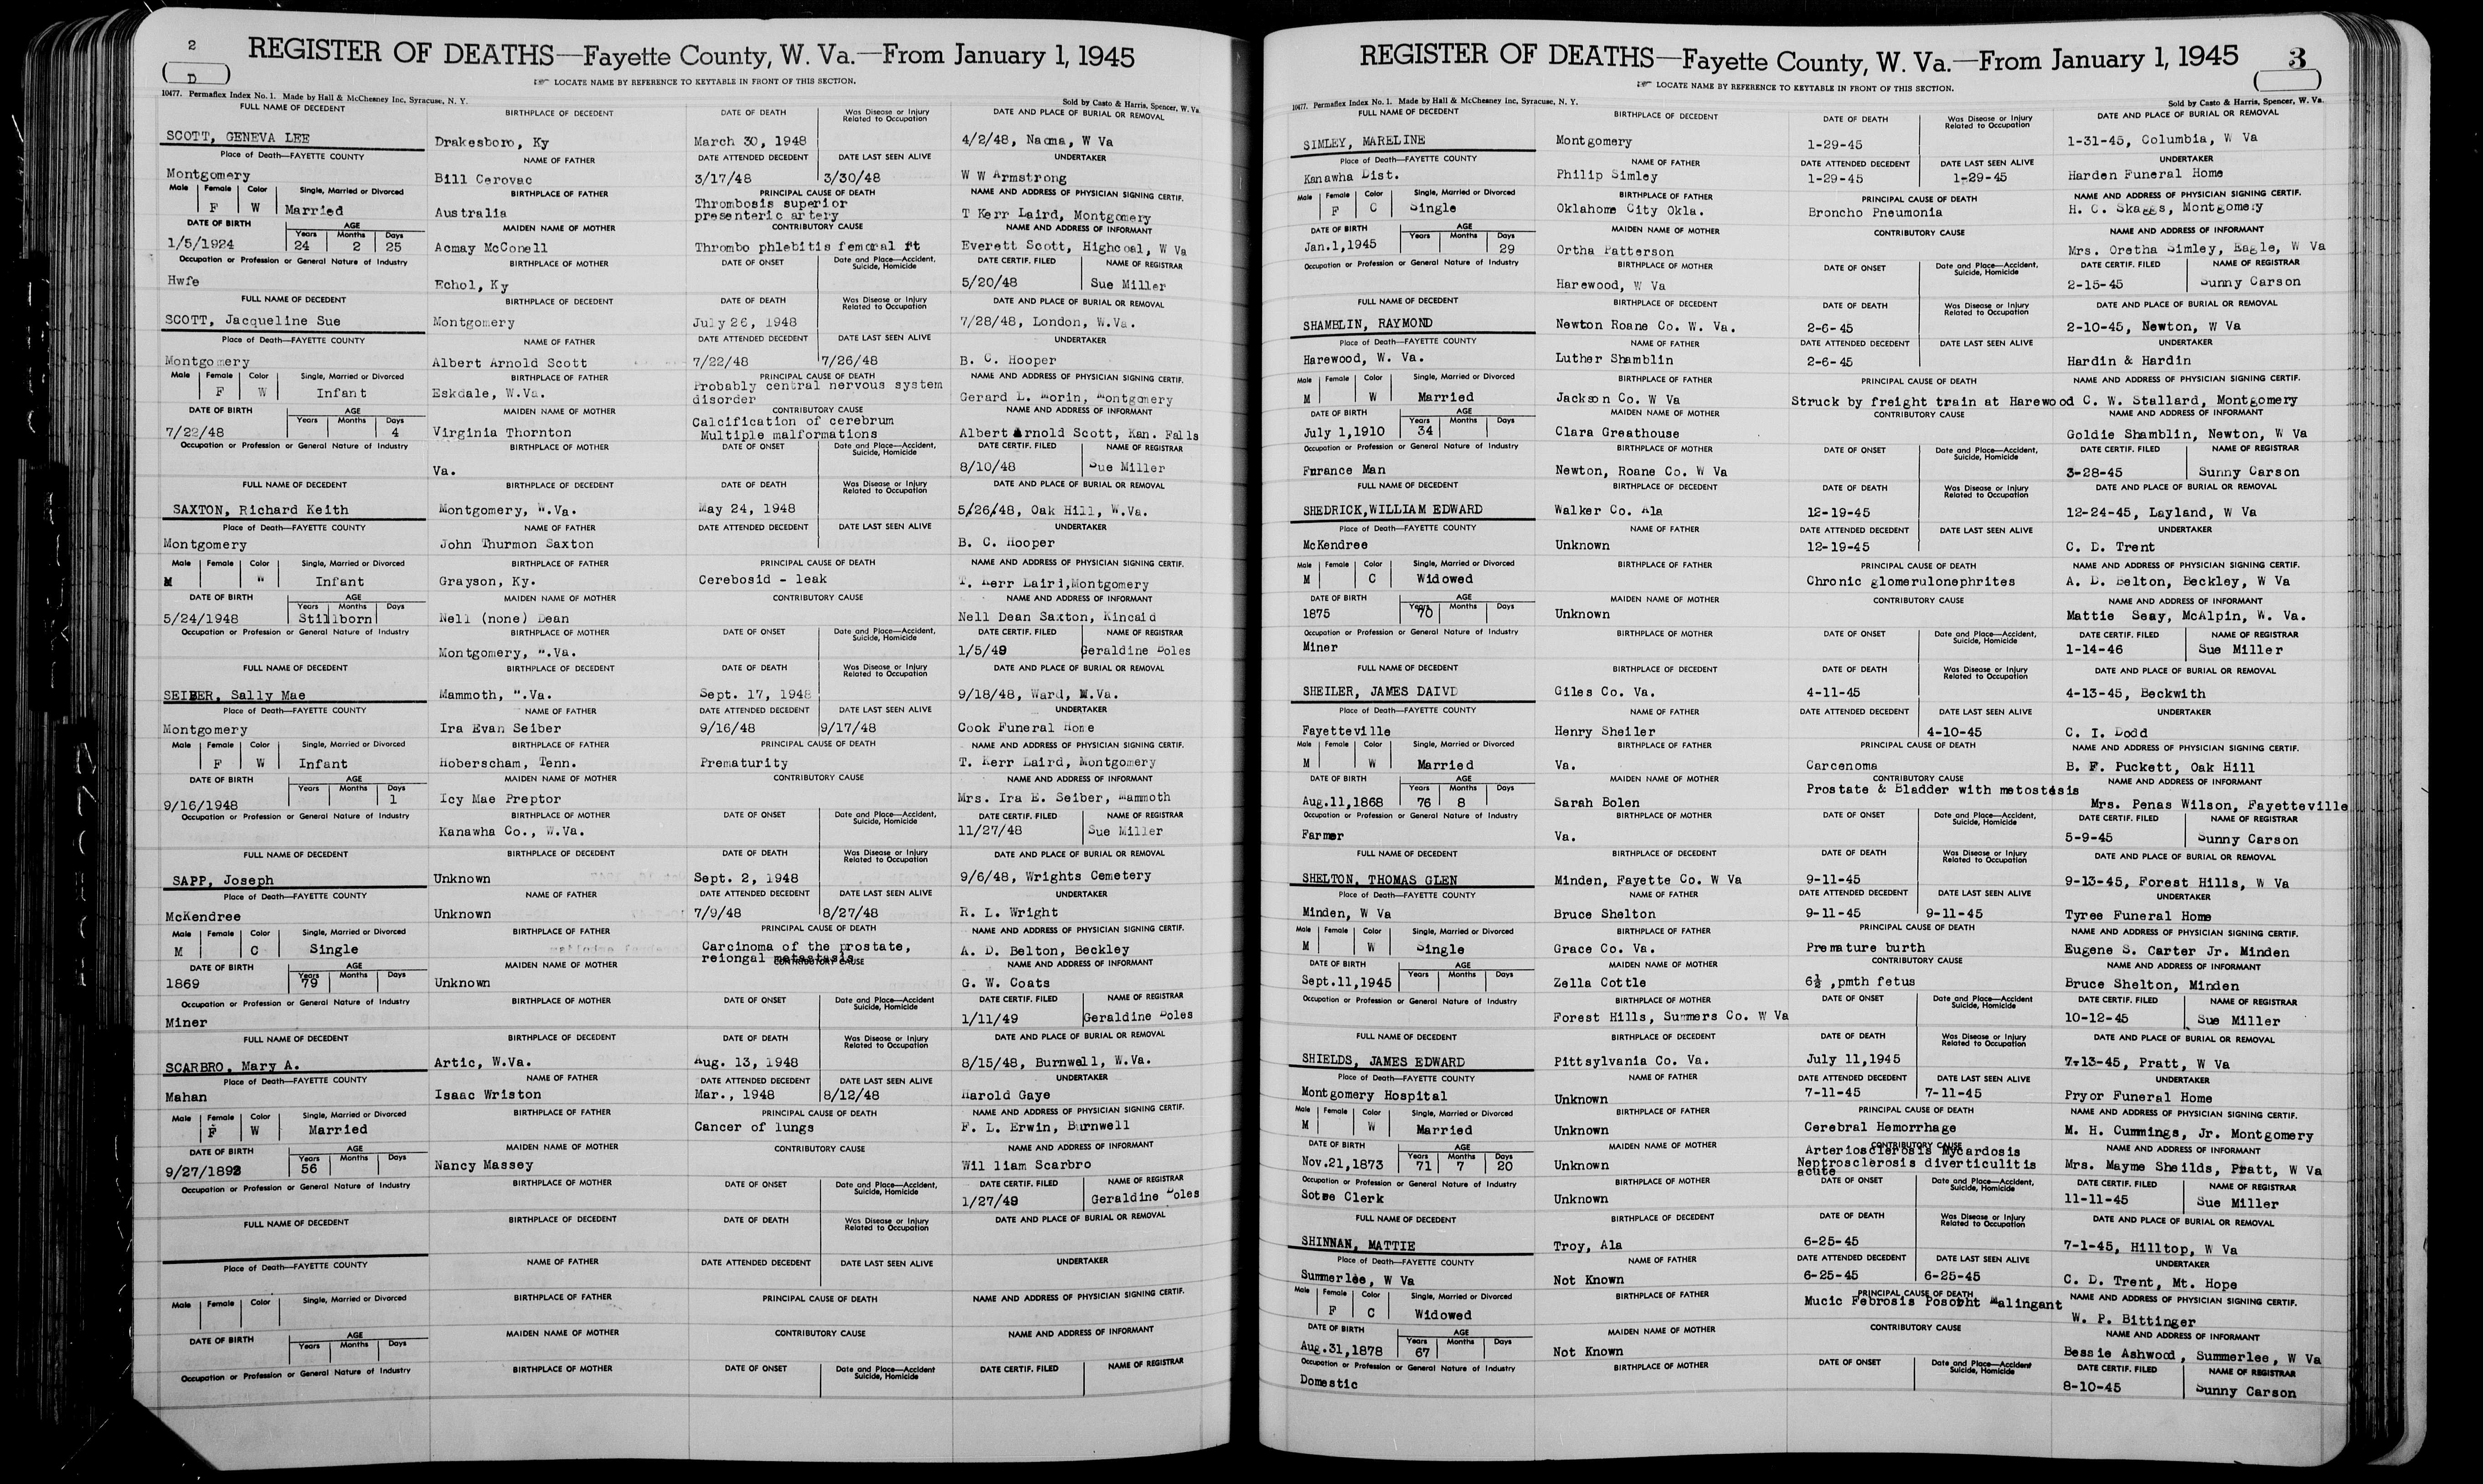 2
D
REGISTER OF DEATHS—Fayette County, W. Va.—From January 1, 1945
LOCATE NAME BY REFERENCE TO KEYTABLE IN FRONT OF THIS SECTION.
10477. Permaflex Index No. 1. Made by Hall & McChesney Inc, Syracuse, N. Y. Sold by Casto & Harris, Spencer, W. Va.
FULL NAME OF DECEDENT BIRTHPLACE OF DECEDENT DATE OF DEATH Was Disease or Injury Related to Occupation DATE AND PLACE OF BURIAL OR REMOVAL
SCOTT, GENEVA LEE Drakesboro, Ky March 30, 1948 4/2/48, Naoma, W Va
Place of Death—FAYETTE COUNTY NAME OF FATHER DATE ATTENDED DECEDENT DATE LAST SEEN ALIVE UNDERTAKER
Montgomery Bill Cerovac 3/17/48 3/30/48 W W Armstrong
Male Female Color Single, Married or Divorced BIRTHPLACE OF FATHER PRINCIPAL CAUSE OF DEATH NAME AND ADDRESS OF PHYSICIAN SIGNING CERTIF.
F W Married Australia Thrombosis superior presenteric artery T Kerr Laird, Montgomery
DATE OF BIRTH AGE Years Months Days MAIDEN NAME OF MOTHER CONTRIBUTORY CAUSE NAME AND ADDRESS OF INFORMANT
1/5/1924 24 2 25 Acmay McConell Thrombo phlebitis femoral rt Everett Scott, Highcoal, W Va
Occupation or Profession or General Nature of Industry BIRTHPLACE OF MOTHER DATE OF ONSET Date and Place—Accident, Suicide, Homicide DATE CERTIF. FILED NAME OF REGISTRAR
Hwfe Echol, Ky 5/20/48 Sue Miller
FULL NAME OF DECEDENT BIRTHPLACE OF DECEDENT DATE OF DEATH Was Disease or Injury Related to Occupation DATE AND PLACE OF BURIAL OR REMOVAL
SCOTT, Jacqueline Sue Montgomery July 26, 1948 7/28/48, London, W.Va.
Place of Death—FAYETTE COUNTY NAME OF FATHER DATE ATTENDED DECEDENT DATE LAST SEEN ALIVE UNDERTAKER
Montgomery Albert Arnold Scott 7/22/48 7/26/48 B. C. Hooper
Male Female Color Single, Married or Divorced BIRTHPLACE OF FATHER PRINCIPAL CAUSE OF DEATH NAME AND ADDRESS OF PHYSICIAN SIGNING CERTIF.
F W Infant Eskdale, W.Va. Probably central nervous system disorder Gerard L. Morin, Montgomery
DATE OF BIRTH AGE Years Months Days MAIDEN NAME OF MOTHER CONTRIBUTORY CAUSE NAME AND ADDRESS OF INFORMANT
7/22/48 4 Virginia Thornton Calcification of cerebrum Multiple malformations Albert Arnold Scott, Kan. Falls
Occupation or Profession or General Nature of Industry BIRTHPLACE OF MOTHER DATE OF ONSET Date and Place—Accident, Suicide, Homicide DATE CERTIF. FILED NAME OF REGISTRAR
Va. 8/10/48 Sue Miller
FULL NAME OF DECEDENT BIRTHPLACE OF DECEDENT DATE OF DEATH Was Disease or Injury Related to Occupation DATE AND PLACE OF BURIAL OR REMOVAL
SAXTON, Richard Keith Montgomery, W.Va. May 24, 1948 5/26/48, Oak Hill, W.Va.
Place of Death—FAYETTE COUNTY NAME OF FATHER DATE ATTENDED DECEDENT DATE LAST SEEN ALIVE UNDERTAKER
Montgomery John Thurmon Saxton B. C. Hooper
Male Female Color Single, Married or Divorced BIRTHPLACE OF FATHER PRINCIPAL CAUSE OF DEATH NAME AND ADDRESS OF PHYSICIAN SIGNING CERTIF.
M W Infant Grayson, Ky. Cerebosid - leak T. Kerr Laird,Montgomery
DATE OF BIRTH AGE Years Months Days MAIDEN NAME OF MOTHER CONTRIBUTORY CAUSE NAME AND ADDRESS OF INFORMANT
5/24/1948 Stillborn Nell (none) Dean Nell Dean Saxton, Kincaid
Occupation or Profession or General Nature of Industry BIRTHPLACE OF MOTHER DATE OF ONSET Date and Place—Accident, Suicide, Homicide DATE CERTIF. FILED NAME OF REGISTRAR
Montgomery, W.Va. 1/5/49 Geraldine Boles
FULL NAME OF DECEDENT BIRTHPLACE OF DECEDENT DATE OF DEATH Was Disease or Injury Related to Occupation DATE AND PLACE OF BURIAL OR REMOVAL
SEIBER, Sally Mae Mammoth, W.Va. Sept. 17, 1948 9/18/48, Ward, W.Va.
Place of Death—FAYETTE COUNTY NAME OF FATHER DATE ATTENDED DECEDENT DATE LAST SEEN ALIVE UNDERTAKER
Montgomery Ira Evan Seiber 9/16/48 9/17/48 Cook Funeral Home
Male Female Color Single, Married or Divorced BIRTHPLACE OF FATHER PRINCIPAL CAUSE OF DEATH NAME AND ADDRESS OF PHYSICIAN SIGNING CERTIF.
F W Infant Hoberscham, Tenn. Prematurity T. Kerr Laird, Montgomery
DATE OF BIRTH AGE Years Months Days MAIDEN NAME OF MOTHER CONTRIBUTORY CAUSE NAME AND ADDRESS OF INFORMANT
9/16/1948 1 Icy Mae Preptor Mrs. Ira E. Seiber, Mammoth
Occupation or Profession or General Nature of Industry BIRTHPLACE OF MOTHER DATE OF ONSET Date and Place—Accident, Suicide, Homicide DATE CERTIF. FILED NAME OF REGISTRAR
Kanawha Co., W.Va. 11/27/48 Sue Miller
FULL NAME OF DECEDENT BIRTHPLACE OF DECEDENT DATE OF DEATH Was Disease or Injury Related to Occupation DATE AND PLACE OF BURIAL OR REMOVAL
SAPP, Joseph Unknown Sept. 2, 1948 9/6/48, Wrights Cemetery
Place of Death—FAYETTE COUNTY NAME OF FATHER DATE ATTENDED DECEDENT DATE LAST SEEN ALIVE UNDERTAKER
McKendree Unknown 7/9/48 8/27/48 R. L. Wright
Male Female Color Single, Married or Divorced BIRTHPLACE OF FATHER PRINCIPAL CAUSE OF DEATH NAME AND ADDRESS OF PHYSICIAN SIGNING CERTIF.
M C Single Carcinoma of the prostate, reiongal metastasis A. D. Belton, Beckley
DATE OF BIRTH AGE Years Months Days MAIDEN NAME OF MOTHER CONTRIBUTORY CAUSE NAME AND ADDRESS OF INFORMANT
1869 79 Unknown G. W. Coats
Occupation or Profession or General Nature of Industry BIRTHPLACE OF MOTHER DATE OF ONSET Date and Place—Accident Suicide, Homicide DATE CERTIF. FILED NAME OF REGISTRAR
Miner 1/11/49 Geraldine Boles
FULL NAME OF DECEDENT BIRTHPLACE OF DECEDENT DATE OF DEATH Was Disease or Injury Related to Occupation DATE AND PLACE OF BURIAL OR REMOVAL
SCARBRO, Mary A. Artic, W.Va. Aug. 13, 1948 8/15/48, Burnwell, W.Va.
Place of Death—FAYETTE COUNTY NAME OF FATHER DATE ATTENDED DECEDENT DATE LAST SEEN ALIVE UNDERTAKER
Mahan Isaac Wriston Mar., 1948 8/12/48 Harold Gaye
Male Female Color Single, Married or Divorced BIRTHPLACE OF FATHER PRINCIPAL CAUSE OF DEATH NAME AND ADDRESS OF PHYSICIAN SIGNING CERTIF.
F W Married Cancer of lungs F. L. Erwin, Burnwell
DATE OF BIRTH AGE Years Months Days MAIDEN NAME OF MOTHER CONTRIBUTORY CAUSE NAME AND ADDRESS OF INFORMANT
9/27/1892 56 Nancy Massey Wil liam Scarbro
Occupation or Profession or General Nature of Industry BIRTHPLACE OF MOTHER DATE OF ONSET Date and Place—Accident, Suicide, Homicide DATE CERTIF. FILED NAME OF REGISTRAR
1/27/49 Geraldine Boles
FULL NAME OF DECEDENT BIRTHPLACE OF DECEDENT DATE OF DEATH Was Disease or Injury Related to Occupation DATE AND PLACE OF BURIAL OR REMOVAL
Place of Death—FAYETTE COUNTY NAME OF FATHER DATE ATTENDED DECEDENT DATE LAST SEEN ALIVE UNDERTAKER
Male Female Color Single, Married or Divorced BIRTHPLACE OF FATHER PRINCIPAL CAUSE OF DEATH NAME AND ADDRESS OF PHYSICIAN SIGNING CERTIF.
DATE OF BIRTH AGE Years Months Days MAIDEN NAME OF MOTHER CONTRIBUTORY CAUSE NAME AND ADDRESS OF INFORMANT
Occupation or Profession or General Nature of Industry BIRTHPLACE OF MOTHER DATE OF ONSET Date and Place—Accident Suicide, Homicide DATE CERTIF. FILED NAME OF REGISTRAR
REGISTER OF DEATHS—Fayette County, W. Va.—From January 1, 1945 3
LOCATE NAME BY REFERENCE TO KEYTABLE IN FRONT OF THIS SECTION.
10477. Permaflex Index No. 1. Made by Hall & McChesney Inc, Syracuse, N. Y. Sold by Casto & Harris, Spencer, W. Va.
FULL NAME OF DECEDENT BIRTHPLACE OF DECEDENT DATE OF DEATH Was Disease or Injury Related to Occupation DATE AND PLACE OF BURIAL OR REMOVAL
SIMLEY, MARELINE Montgomery 1-29-45 1-31-45, Columbia, W Va
Place of Death—FAYETTE COUNTY NAME OF FATHER DATE ATTENDED DECEDENT DATE LAST SEEN ALIVE UNDERTAKER
Kanawha Dist. Philip Simley 1-29-45 1-29-45 Harden Funeral Home
Male Female Color Single, Married or Divorced BIRTHPLACE OF FATHER PRINCIPAL CAUSE OF DEATH NAME AND ADDRESS OF PHYSICIAN SIGNING CERTIF.
F C Single Oklahome City Okla. Broncho Pneumonia H. C. Skaggs, Montgomery
DATE OF BIRTH AGE Years Months Days MAIDEN NAME OF MOTHER CONTRIBUTORY CAUSE NAME AND ADDRESS OF INFORMANT
Jan.1,1945 29 Ortha Patterson Mrs. Oretha Simley, Eagle, W Va
Occupation or Profession or General Nature of Industry BIRTHPLACE OF MOTHER DATE OF ONSET Date and Place—Accident, Suicide, Homicide DATE CERTIF. FILED NAME OF REGISTRAR
Harewood, W Va 2-15-45 Sunny Carson
FULL NAME OF DECEDENT BIRTHPLACE OF DECEDENT DATE OF DEATH Was Disease or Injury Related to Occupation DATE AND PLACE OF BURIAL OR REMOVAL
SHAMBLIN, RAYMOND Newton Roane Co. W. Va. 2-6-45 2-10-45, Newton, W Va
Place of Death—FAYETTE COUNTY NAME OF FATHER DATE ATTENDED DECEDENT DATE LAST SEEN ALIVE UNDERTAKER
Harewood, W. Va. Luther Shamblin 2-6-45 Hardin & Hardin
Male Female Color Single, Married or Divorced BIRTHPLACE OF FATHER PRINCIPAL CAUSE OF DEATH NAME AND ADDRESS OF PHYSICIAN SIGNING CERTIF.
M W Married Jackson Co. W Va Struck by freight train at Harewood C. W. Stallard, Montgomery
DATE OF BIRTH AGE Years Months Days MAIDEN NAME OF MOTHER CONTRIBUTORY CAUSE NAME AND ADDRESS OF INFORMANT
July 1,1910 34 Clara Greathouse Goldie Shamblin, Newton, W Va
Occupation or Profession or General Nature of Industry BIRTHPLACE OF MOTHER DATE OF ONSET Date and Place—Accident, Suicide, Homicide DATE CERTIF. FILED NAME OF REGISTRAR
Furance Man Newton, Roane Co. W Va 3-28-45 Sunny Carson
FULL NAME OF DECEDENT BIRTHPLACE OF DECEDENT DATE OF DEATH Was Disease or Injury Related to Occupation DATE AND PLACE OF BURIAL OR REMOVAL
SHEDRICK,WILLIAM EDWARD Walker Co. Ala 12-19-45 12-24-45, Layland, W Va
Place of Death—FAYETTE COUNTY NAME OF FATHER DATE ATTENDED DECEDENT DATE LAST SEEN ALIVE UNDERTAKER
McKendree Unknown 12-19-45 C. D. Trent
Male Female Color Single, Married or Divorced BIRTHPLACE OF FATHER PRINCIPAL CAUSE OF DEATH NAME AND ADDRESS OF PHYSICIAN SIGNING CERTIF.
M C Widowed Chronic glomerulonephrites A. D. Belton, Beckley, W Va
DATE OF BIRTH AGE Years Months Days MAIDEN NAME OF MOTHER CONTRIBUTORY CAUSE NAME AND ADDRESS OF INFORMANT
1875 70 Unknown Mattie Seay, McAlpin, W. Va.
Occupation or Profession or General Nature of Industry BIRTHPLACE OF MOTHER DATE OF ONSET Date and Place—Accident, Suicide, Homicide DATE CERTIF. FILED NAME OF REGISTRAR
Miner 1-14-46 Sue Miller
FULL NAME OF DECEDENT BIRTHPLACE OF DECEDENT DATE OF DEATH Was Disease or Injury Related to Occupation DATE AND PLACE OF BURIAL OR REMOVAL
SHEILER, JAMES DAIVD Giles Co. Va. 4-11-45 4-13-45, Beckwith
Place of Death—FAYETTE COUNTY NAME OF FATHER DATE ATTENDED DECEDENT DATE LAST SEEN ALIVE UNDERTAKER
Fayetteville Henry Sheiler 4-10-45 C. I. Dodd
Male Female Color Single, Married or Divorced BIRTHPLACE OF FATHER PRINCIPAL CAUSE OF DEATH NAME AND ADDRESS OF PHYSICIAN SIGNING CERTIF.
M W Married Va. Carcenoma B. F. Puckett, Oak Hill
DATE OF BIRTH AGE Years Months Days MAIDEN NAME OF MOTHER CONTRIBUTORY CAUSE NAME AND ADDRESS OF INFORMANT
Aug.11,1868 76 8 Sarah Bolen Prostate & Bladder with metostasis Mrs. Penas Wilson, Fayetteville
Occupation or Profession or General Nature of Industry BIRTHPLACE OF MOTHER DATE OF ONSET Date and Place—Accident, Suicide, Homicide DATE CERTIF. FILED NAME OF REGISTRAR
Farmer Va. 5-9-45 Sunny Carson
FULL NAME OF DECEDENT BIRTHPLACE OF DECEDENT DATE OF DEATH Was Disease or Injury Related to Occupation DATE AND PLACE OF BURIAL OR REMOVAL
SHELTON, THOMAS GLEN Minden, Fayette Co. W Va 9-11-45 9-13-45, Forest Hills, W Va
Place of Death—FAYETTE COUNTY NAME OF FATHER DATE ATTENDED DECEDENT DATE LAST SEEN ALIVE UNDERTAKER
Minden, W Va Bruce Shelton 9-11-45 9-11-45 Tyree Funeral Home
Male Female Color Single, Married or Divorced BIRTHPLACE OF FATHER PRINCIPAL CAUSE OF DEATH NAME AND ADDRESS OF PHYSICIAN SIGNING CERTIF.
M W Single Grace Co. Va. Premature burth Eugene S. Carter Jr. Minden
DATE OF BIRTH AGE Years Months Days MAIDEN NAME OF MOTHER CONTRIBUTORY CAUSE NAME AND ADDRESS OF INFORMANT
Sept.11,1945 Zella Cottle 6½ ,pmth fetus Bruce Shelton, Minden
Occupation or Profession or General Nature of Industry BIRTHPLACE OF MOTHER DATE OF ONSET Date and Place—Accident Suicide, Homicide DATE CERTIF. FILED NAME OF REGISTRAR
Forest Hills, Summers Co. W Va 10-12-45 Sue Miller
FULL NAME OF DECEDENT BIRTHPLACE OF DECEDENT DATE OF DEATH Was Disease or Injury Related to Occupation DATE AND PLACE OF BURIAL OR REMOVAL
SHIELDS, JAMES EDWARD Pittsylvania Co. Va. July 11,1945 7-13-45, Pratt, W Va
Place of Death—FAYETTE COUNTY NAME OF FATHER DATE ATTENDED DECEDENT DATE LAST SEEN ALIVE UNDERTAKER
Montgomery Hospital Unknown 7-11-45 7-11-45 Pryor Funeral Home
Male Female Color Single, Married or Divorced BIRTHPLACE OF FATHER PRINCIPAL CAUSE OF DEATH NAME AND ADDRESS OF PHYSICIAN SIGNING CERTIF.
M W Married Unknown Cerebral Hemorrhage M. H. Cummings, Jr. Montgomery
DATE OF BIRTH AGE Years Months Days MAIDEN NAME OF MOTHER CONTRIBUTORY CAUSE NAME AND ADDRESS OF INFORMANT
Nov.21,1873 71 7 20 Unknown Arteriosclerosis Mycardosis Neptrosclerosis diverticulitis acute Mrs. Mayme Sheilds, Pratt, W Va
Occupation or Profession or General Nature of Industry BIRTHPLACE OF MOTHER DATE OF ONSET Date and Place—Accident, Suicide, Homicide DATE CERTIF. FILED NAME OF REGISTRAR
Sotwe Clerk Unknown 11-11-45 Sue Miller
FULL NAME OF DECEDENT BIRTHPLACE OF DECEDENT DATE OF DEATH Was Disease or Injury Related to Occupation DATE AND PLACE OF BURIAL OR REMOVAL
SHINNAN, MATTIE Troy, Ala 6-25-45 7-1-45, Hilltop, W Va
Place of Death—FAYETTE COUNTY NAME OF FATHER DATE ATTENDED DECEDENT DATE LAST SEEN ALIVE UNDERTAKER
Summerlee, W Va Not Known 6-25-45 6-25-45 C. D. Trent, Mt. Hope
Male Female Color Single, Married or Divorced BIRTHPLACE OF FATHER PRINCIPAL CAUSE OF DEATH NAME AND ADDRESS OF PHYSICIAN SIGNING CERTIF.
F C Widowed Mucic Febrosis Malingant W. P. Bittinger
DATE OF BIRTH AGE Years Months Days MAIDEN NAME OF MOTHER CONTRIBUTORY CAUSE NAME AND ADDRESS OF INFORMANT
Aug.31,1878 67 Not Known Bessie Ashwood, Summerlee, W Va
Occupation or Profession or General Nature of Industry BIRTHPLACE OF MOTHER DATE OF ONSET Date and Place—Accident Suicide, Homicide DATE CERTIF. FILED NAME OF REGISTRAR
Domestic 8-10-45 Sunny Carson